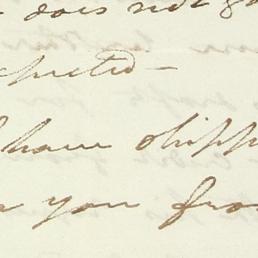 does not g
pected—
have shipp
you fro